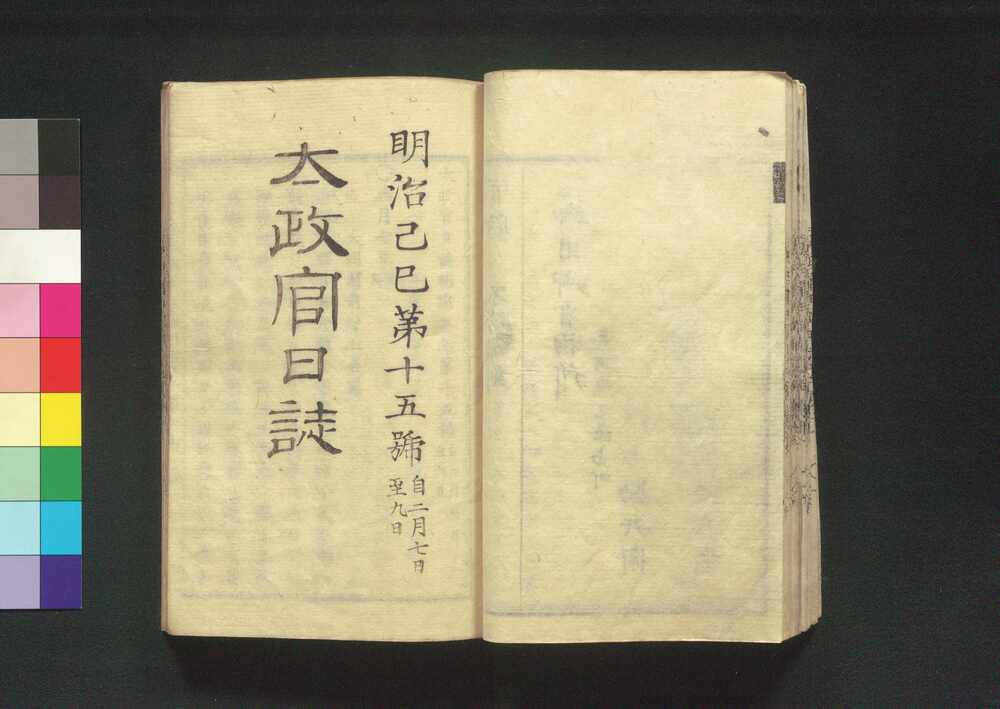 明治己巳第十五號
自二月七日
至九日
太政官日誌